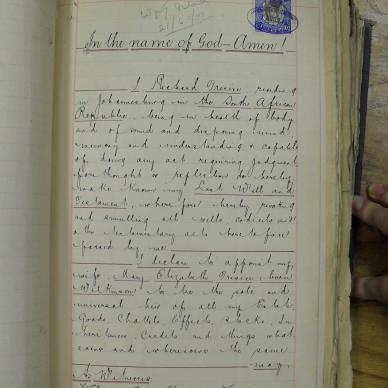 In the name of God - Amen!
I Richard Preece residing
in Johannesburg in the South African
Republic, being in health of body
and of sound and disposing mind,
memory and understanding & capable
of doing any act requiring judgment
fore thought or reflection do hereby
make known my Last Will and
Testament, where fore hereby revoking
and annulling all wills, codicils and
other testamentary acts here to fore
passed by me.
I declare to appoint my
wife Mary Elizabeth Preece born
Wilkinson to be the sole and
universal heir of all my Estate
Goods, Chattels, Effects, Stocks, In
heritances, Credits and things what
soever and wheresoever the same
may
As Witnesses